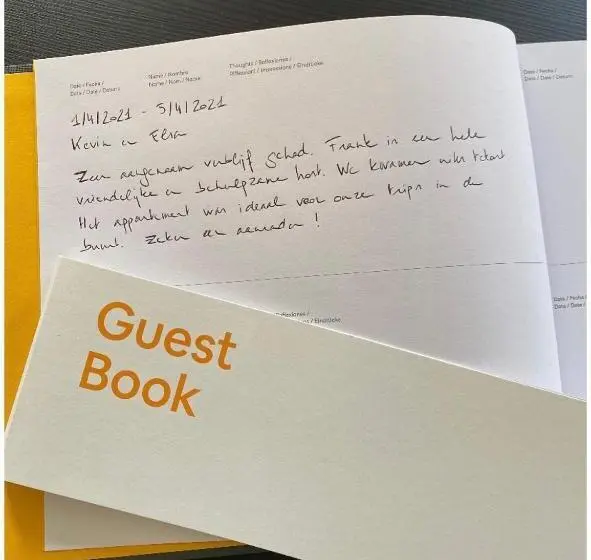 Date / Fecha /
Data / Date / Datum
Name / Nombre
Nome / Nom / Name
Thoughts / Reflexiones /
Riflessioni / Impressions / Eindrücke
Date / Fecha /
Data / Date / Datum
1/4/2021 - 5/4/2021
Kevin en Elsa
Zeer aangenaam verblijf gehad. Frank is een hele
vriendelijke en behulpzame host. We kwamen niks tekort
Het appartement was ideaal voor onze trips in de
buurt. Zeker een aanrader !
Reflexiones /
/ Eindrücke
Date / Fecha /
Data / Date /
Guest
Book